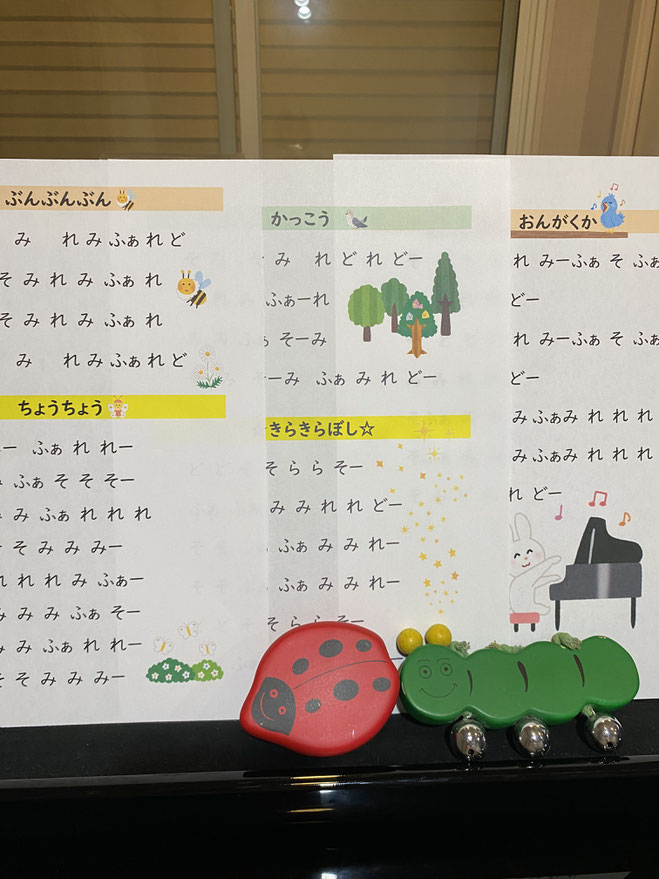 ぶんぶんぶん
み れ み ふぁ れ ど
そ み れ み ふぁ れ
そ み れ み ふぁ れ
み れ み ふぁ れ ど
ちょうちょう
ー ふぁ れ れー
ふぁ そ そ そー
み ふぁ れ れ れ
そ み み みー
れ れ れ み ふぁー
み み み ふぁ そー
み ふぁ れ れー
そ そ み み みー
かっこう
み れ ど れ どー
ふぁー れ
ふぁ そーみ
ーみ ふぁ み れ どー
きらきらぼし☆
そ ら ら そー
み み れ れ どー
ふぁ み み れー
ふぁ み み れー
そ ら ら そー
おんがくか
れ みーふぁ そ ふぁ
どー
れ みーふぁ そ ふぁ
どー
み ふぁみ れ れ れ
み ふぁみ れ れ れ
れ どー